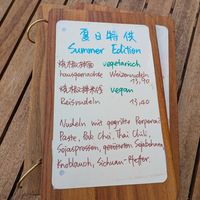 夏日特供
Summer Edition
烧椒拌面 vegetarisch
hausgemachte Weizennudeln
13,90
烧椒拌米线 vegan
Reisnudeln 13,40
Nudeln mit gegrillte Peperoni
Paste, Pak Choi, Thai Chili,
Sojasprossen, gerösteten Sojabohnen
Knoblauch, Sichuan-Pfeffer.